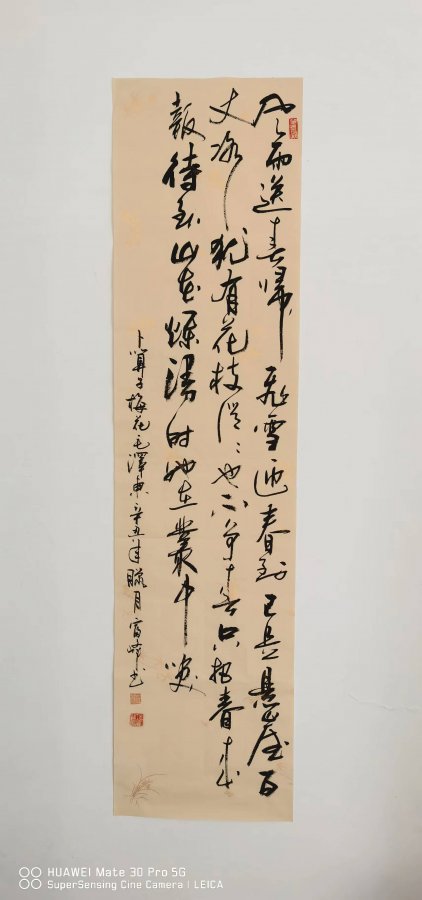 风雨送春归飛雪迎春到已是悬崖百
丈冰犹有花枝俏俏也不争春只把春来
報待到山花爛漫时她在叢中笑
卜算子梅花毛澤東辛丑年臘月富峰书
HUAWEI Mate 30 Pro 5G
SuperSensing Cine Camera | LEICA